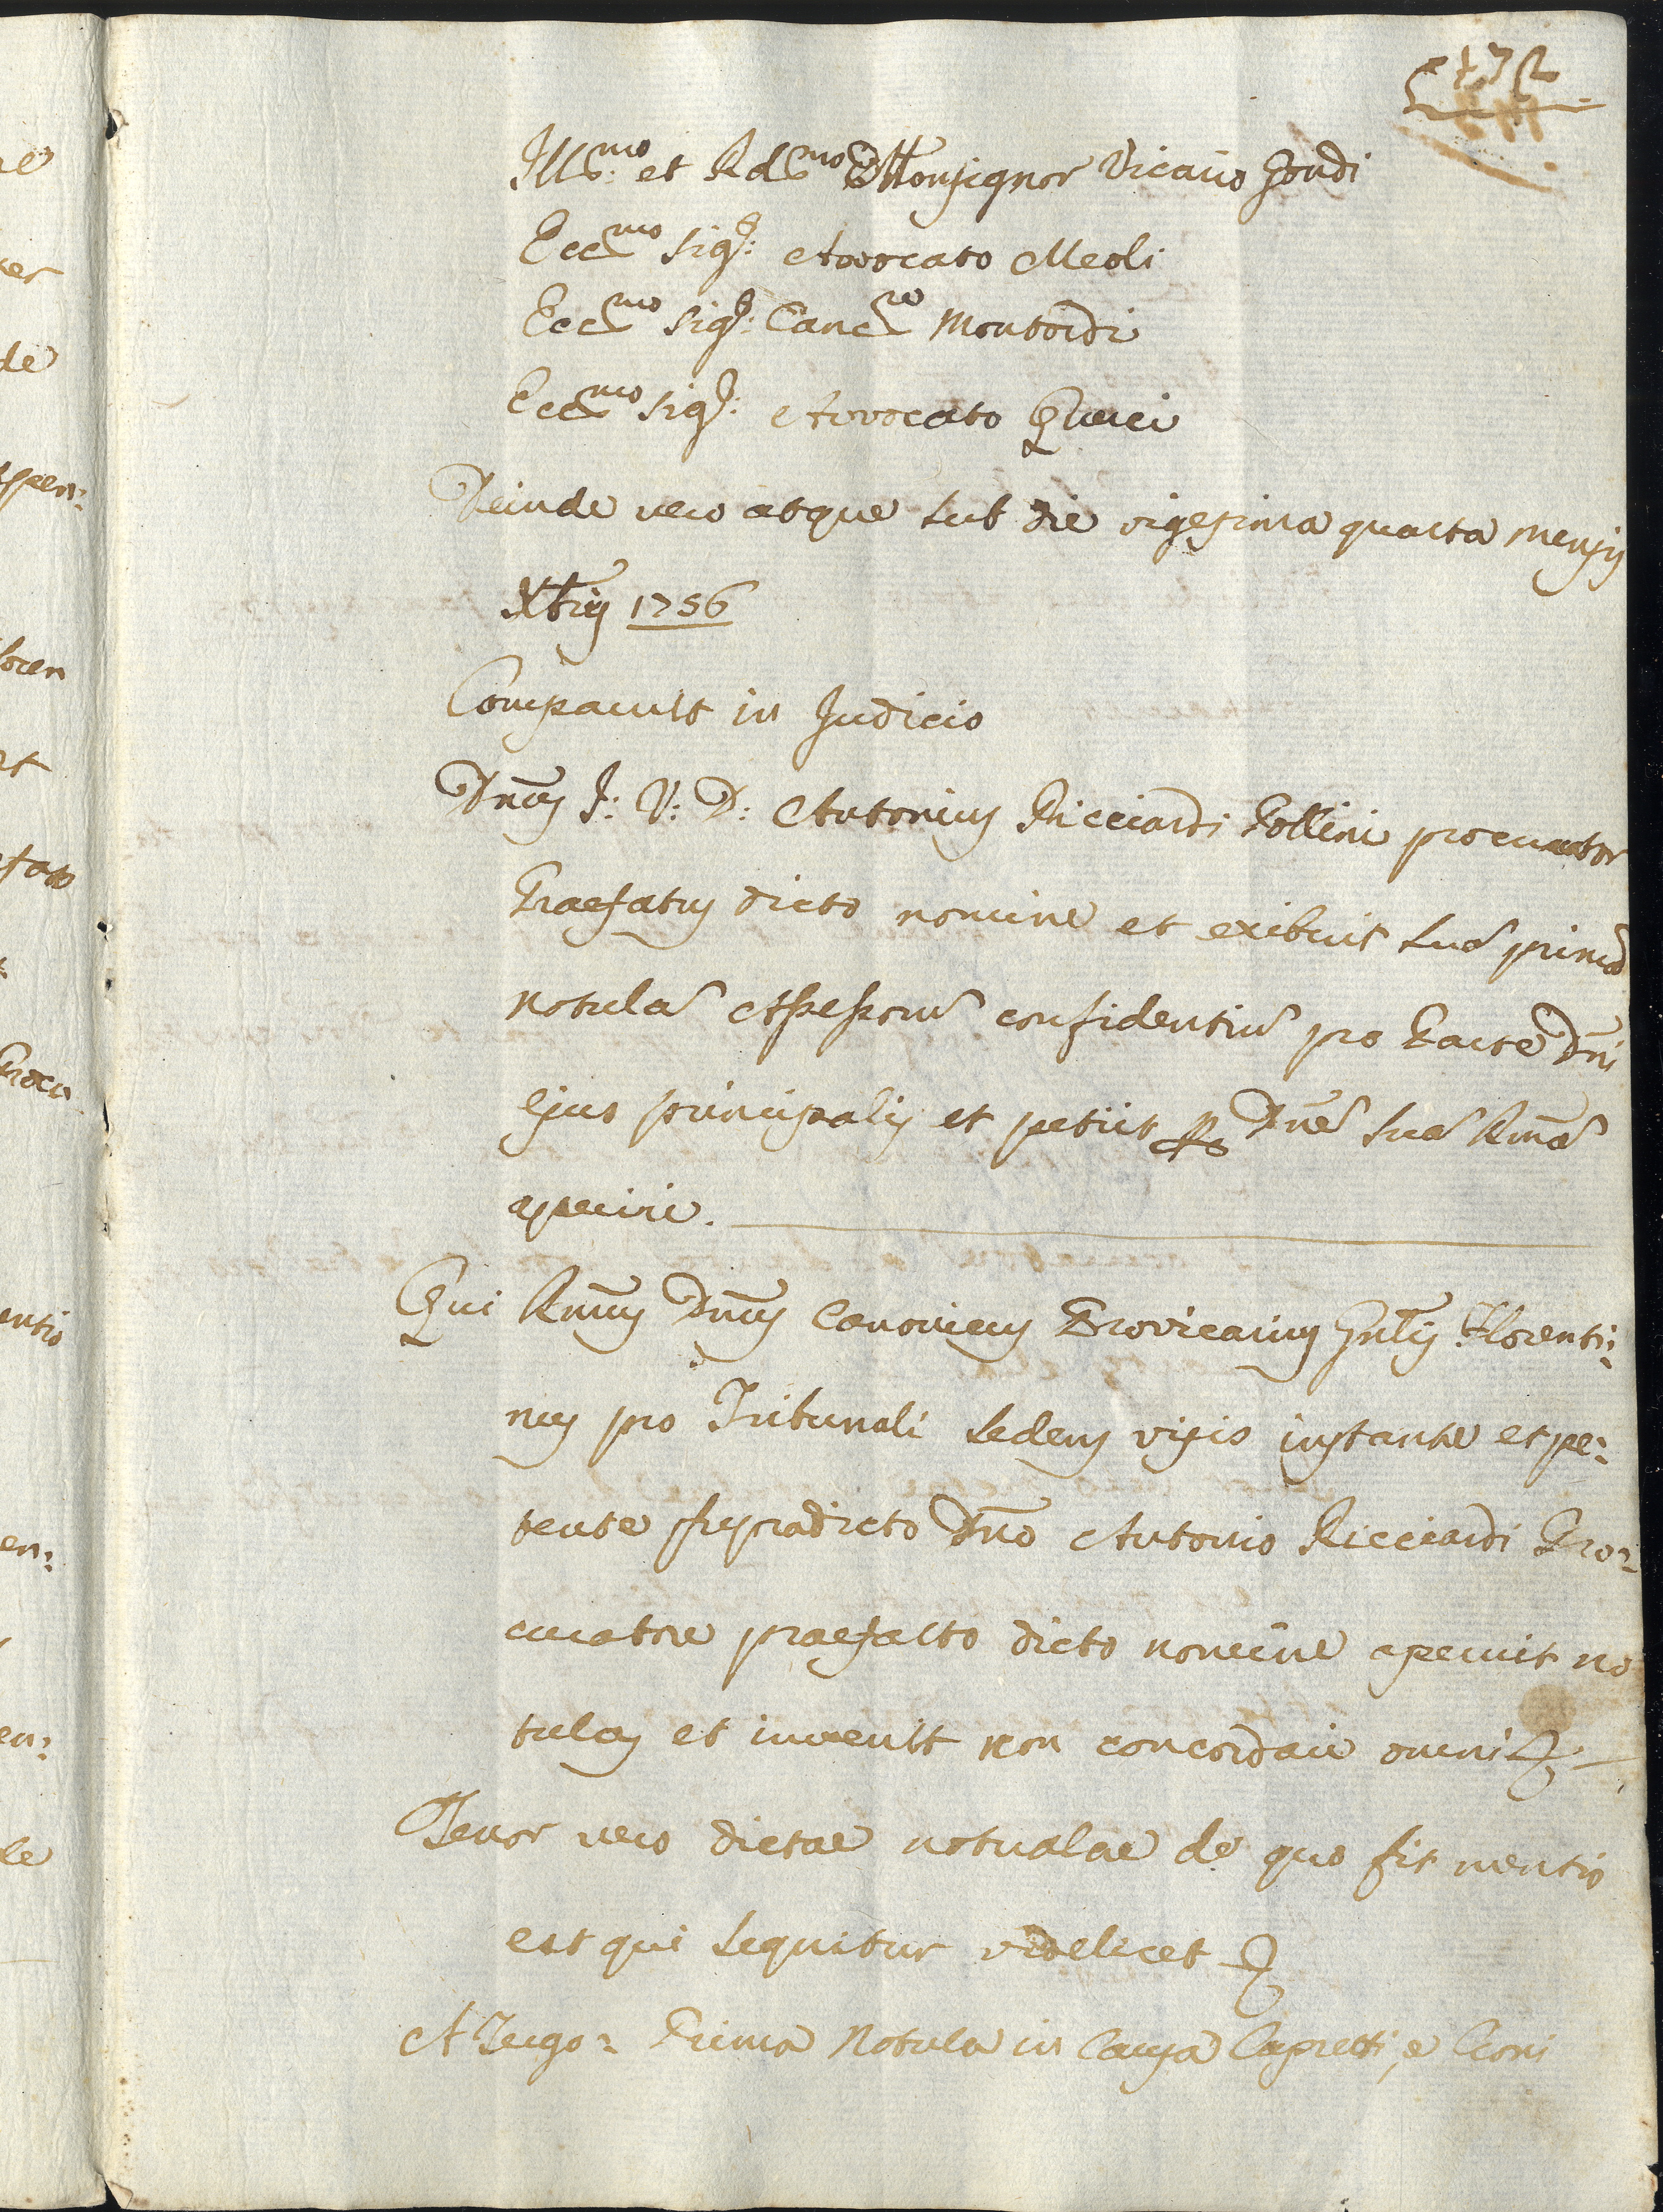 Ill.mo et Rd.mo Monsignor Vicario Gondi
Ecc.mo Sig.e: Avvocato Meoli
Ecc.mo Sig.e: Canc.re Montordi
Ecc.mo Sig.e: Avvocato Querci
Deinde vero atque sub die vigesima quarta mensis
Xbris 1756
Comparuit in Judicio
Dnus J: V: D: Antonius Ricciardi Pollini procurator
Praefatus dicto nomine et exibuit suã primã
notulã Assessorũ confidentiũ pro Parte Dni
ejus principalis et petiit p Dnẽ suã Rmã
aperiri.
Qui Rmus Dnus Canonicus Provicarius Gnlis Florenti:
nus pro Tribunali sedens visis instante et pe:
tente supradicto Dno Antonio Ricciardi Pro:
curatore praefatto dicto nomine aperuit no
tulas et invenit non concordare omni
Tenor vero dictae notualae de quo fit mentio
est qui sequitur videlicet
A Tergo: Prima Notula in Causa Capretti, e Cioni